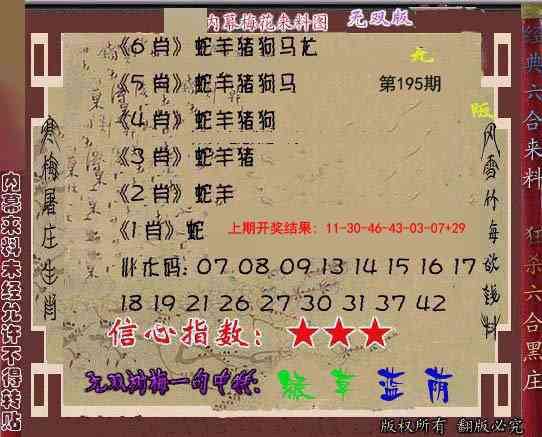 内幕梅花来料图 无双版
《6 肖》蛇羊猪狗马龙
《5 肖》蛇羊猪狗马 第195期
《4 肖》蛇羊猪狗
《3 肖》蛇羊猪
《2 肖》蛇羊
《1 肖》蛇 上期开奖结果：11-30-46-43-03-07+29
07 08 09 13 14 15 16 17
18 19 21 26 27 30 31 37 42
信心指数：★★★
无双鸿梅一句中特： 绿草蓝荫
版权所有 翻版必究
寒梅屠庄生肖
内幕来料未经允许不得转贴
经典六合来料 狂杀六合黑庄